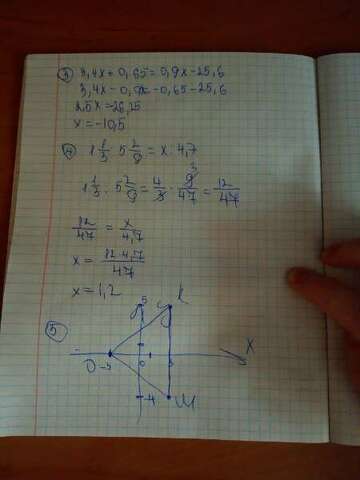 ③ 3,4x+0,65=0,9x-25,6
3,4x-0,9x=-0,65-25,6
2,5x=-26,25
x=-10,5
④ 1 1/3 : 5 2/9 = x : 4,7
1 1/3 : 5 2/9 = 4/3 · 9/47 = 12/47
3
12/47 = x/4,7
x = 12·4,7/47
x=1,2
⑤ y 5 C K
X
O -3 0 3
-4 M